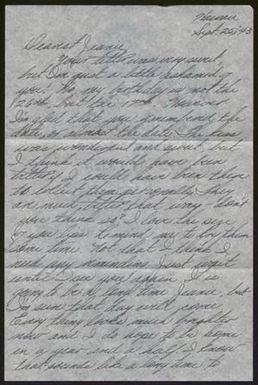 Sept. 25, '43
Dearest Jeanie,
Your letter was very sweet,
but I'm just a little ashamed of
you! No, my birthday is not the
but the 17th.
I'm glad that you remembered the
date, or almost the date. The
was wonderful and sweet but
I think it would have been
better if I could have been there
to collect them personally. They
are much better that way - don't
you think so? I love the size
of you
some time. Not that I think I
need any reminding. Just wait
until I see you again. It is
going to be a long time Jeanie, but
I'm sure that day will come.
Everything looks much brighter
now and I do hope to be home
in a year and a half. I know
that sounds like a long time to